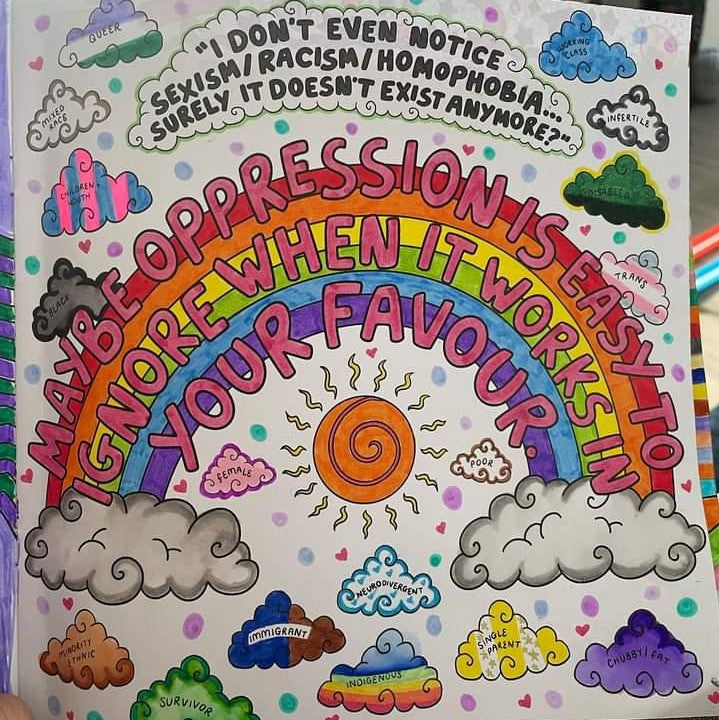 "I DON'T EVEN NOTICE
SEXISM/RACISM/HOMOPHOBIA...
SURELY IT DOESN'T EXIST ANYMORE?"
QUEER
WORKING
CLASS
MIXED
RACE
INFERTILE
CHILDREN +
YOUTH
DISABLED
BLACK
TRANS
MAYBE OPPRESSION IS EASY TO
IGNORE WHEN IT WORKS IN
YOUR FAVOUR.
FEMALE
POOR
NEURODIVERGENT
IMMIGRANT
SINGLE
PARENT
MINORITY
ETHNIC
INDIGENOUS
CHUBBY/FAT
SURVIVOR